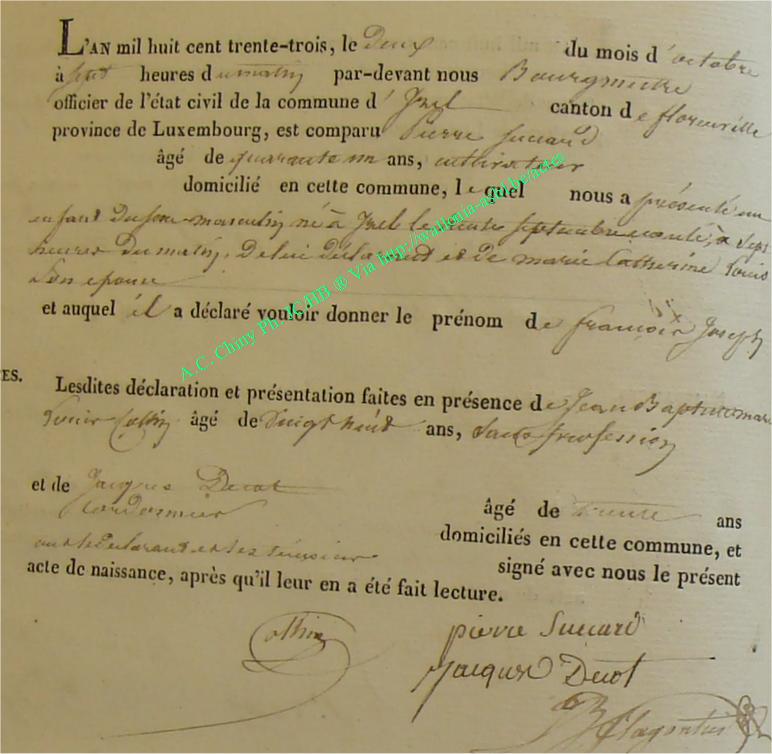 L'AN mil huit cent trente-trois, le deux du mois d'octobre
à sept heures du matin par-devant nous Bourgmestre
officier de l'état civil de la commune d'Izel canton de florenville
province de Luxembourg, est comparu Pierre Succard
âgé de quarante un ans, cultivateur
domicilié en cette commune, lequel nous a présenté un
enfant du sexe masculin né à Izel le trente septembre écoulé, à sept
heures du matin, de lui déclarant et de marie Catherine Louis
Son épouse
et auquel il a déclaré vouloir donner le prénom de françois Joseph
ES.
Lesdites déclaration et présentation faites en présence de Jean Baptiste
Collin âgé de Vingt huit ans, sans profession
et de Jacques Decot
Cordonnier
âgé de trente ans
domiciliés en cette commune, et
ont le déclarant et les témoins signé avec nous le présent
acte de naissance, après qu'il leur en a été fait lecture.
Collin
pierre Succard
Jacques Decot
A.C. Chiny Ph. IC HB ® Via http://wallonia-asbl.be/actes